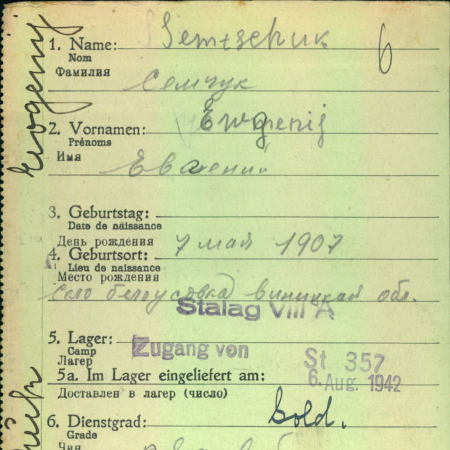 1. Name: Semtschuk
6
Nom
Фамилия Семчук
2. Vornamen: Ewgenij
Prénoms
Имя Евгений
3. Geburtstag:
Date de naissance
День рождения 7 май 1907
4. Geburtsort:
Lieu de naissance
Место рождения
село белоусовка виницкай обл.
Stalag VIII A
5. Lager: Zugang von St 357
Camp
Лагер
5a. Im Lager eingeliefert am: 6. Aug. 1942
Доставлен в лагер (число)
6. Dienstgrad: Sold.
Grade
Чин